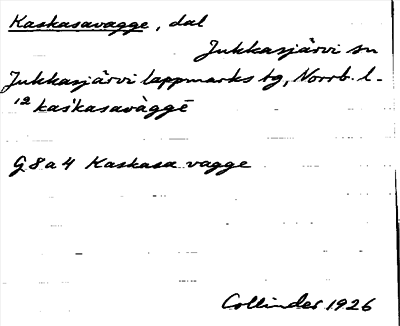 Kaskasavagge, dal
Jukkasjärvi sn
Jukkasjärvi lappmarks tg, Norrb. l.
12 kas'kasavàggē
G 8 a 4 Kaskasa vagge
Collinder 1926